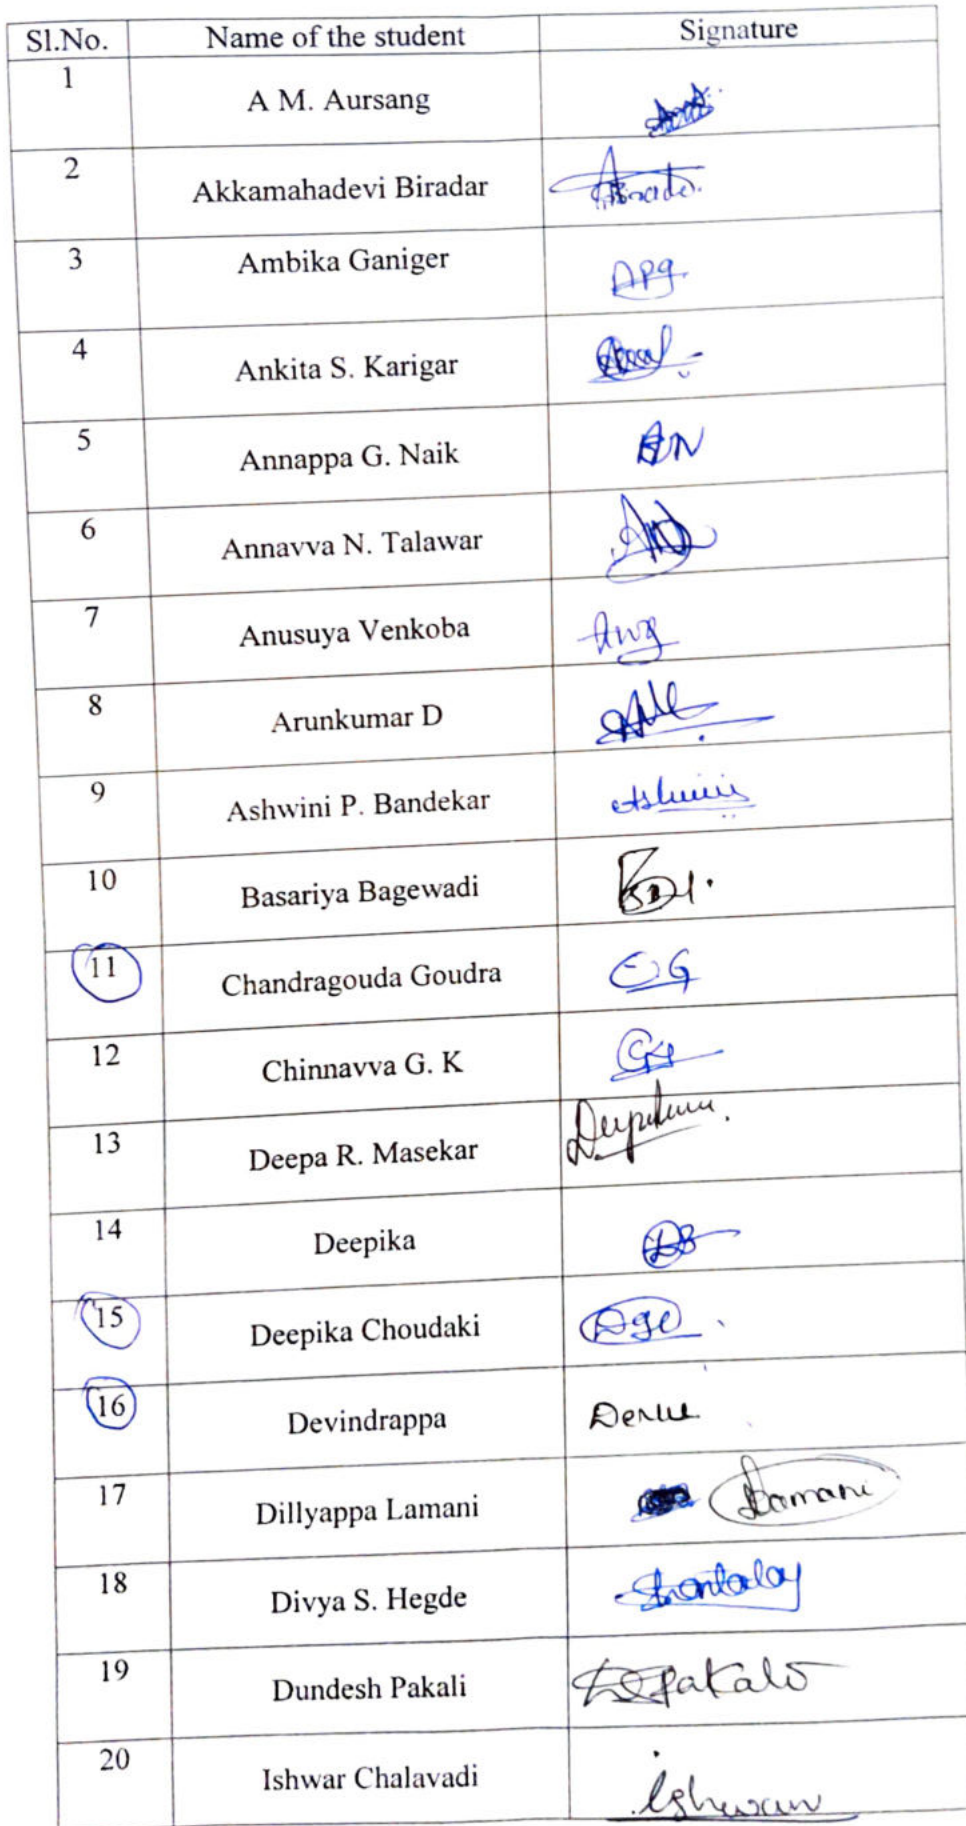 Sl.No. Name of the student Signature
1 A M. Aursang
2 Akkamahadevi Biradar
3 Ambika Ganiger Apg.
4 Ankita S. Karigar
5 Annappa G. Naik AN
6 Annavva N. Talawar
7 Anusuya Venkoba
8 Arunkumar D
9 Ashwini P. Bandekar Ashwini
10 Basariya Bagewadi
11 Chandragouda Goudra CG
12 Chinnavva G. K
13 Deepa R. Masekar
14 Deepika DB
15 Deepika Choudaki
16 Devindrappa
17 Dillyappa Lamani Lamani
18 Divya S. Hegde
19 Dundesh Pakali
20 Ishwar Chalavadi Ishwar